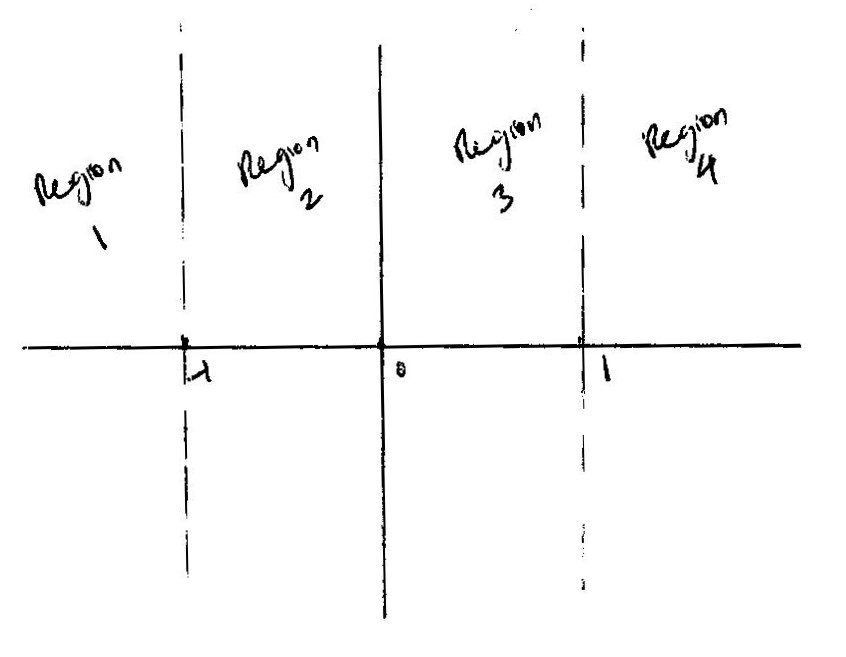 Region
1
Region
2
Region
3
Region
4
-1
0
1